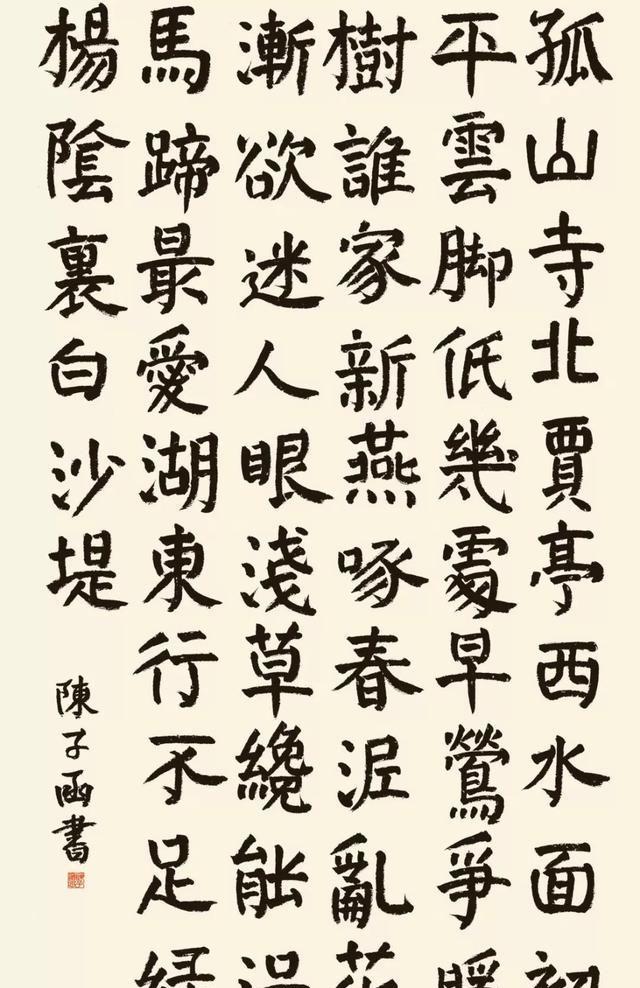 孤山寺北賈亭西水面初
平雲脚低幾處早鶯爭暖
樹誰家新燕啄春泥亂花
漸欲迷人眼淺草纔能
馬蹄最愛湖東行不足綠
楊陰裏白沙堤
陳子函書